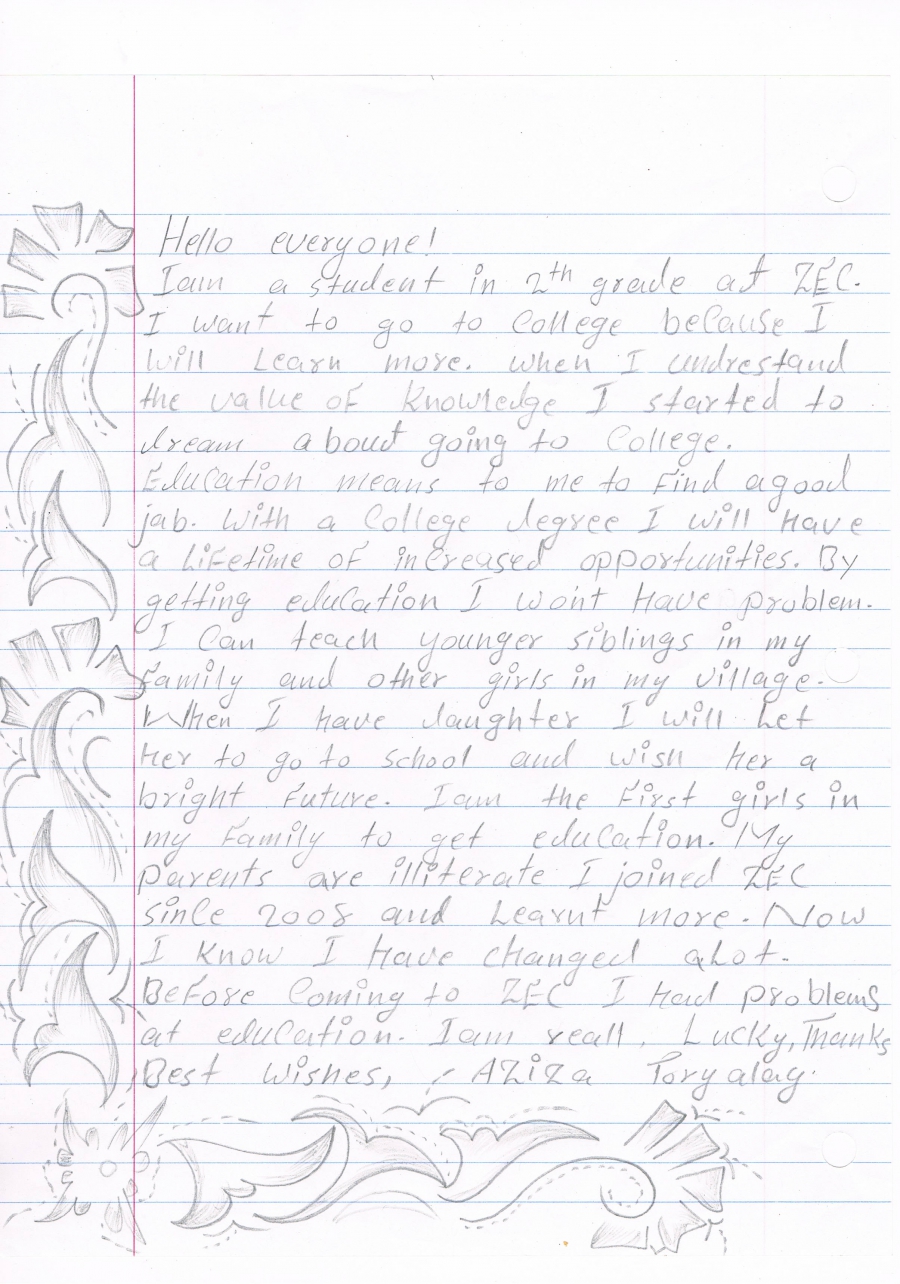 Hello everyone!
Iam a student in 2th grade at ZEC.
I want to go to College because I
will Learn more. when I undrestand
the value of Knowledge I started to
dream about going to College.
Education means to me to Find agood
jab. With a College degree I will Have
a LiFetime of increased opportunities. By
getting education I won't Have problem.
I Can teach younger siblings in my
Family and other girls in my village.
When I have daughter I will Let
Her to go to school and wish Her a
bright Future. Iam the First girls in
my Family to get education. My
parents are illiterate I joined ZEC
since 2008 and Learnt more. Now
I Know I Have changed aLot.
BeFore Coming to ZEC I Had problems
at education. Iam reall. Lucky, Thanks
Best Wishes, Aziza Toryalay.